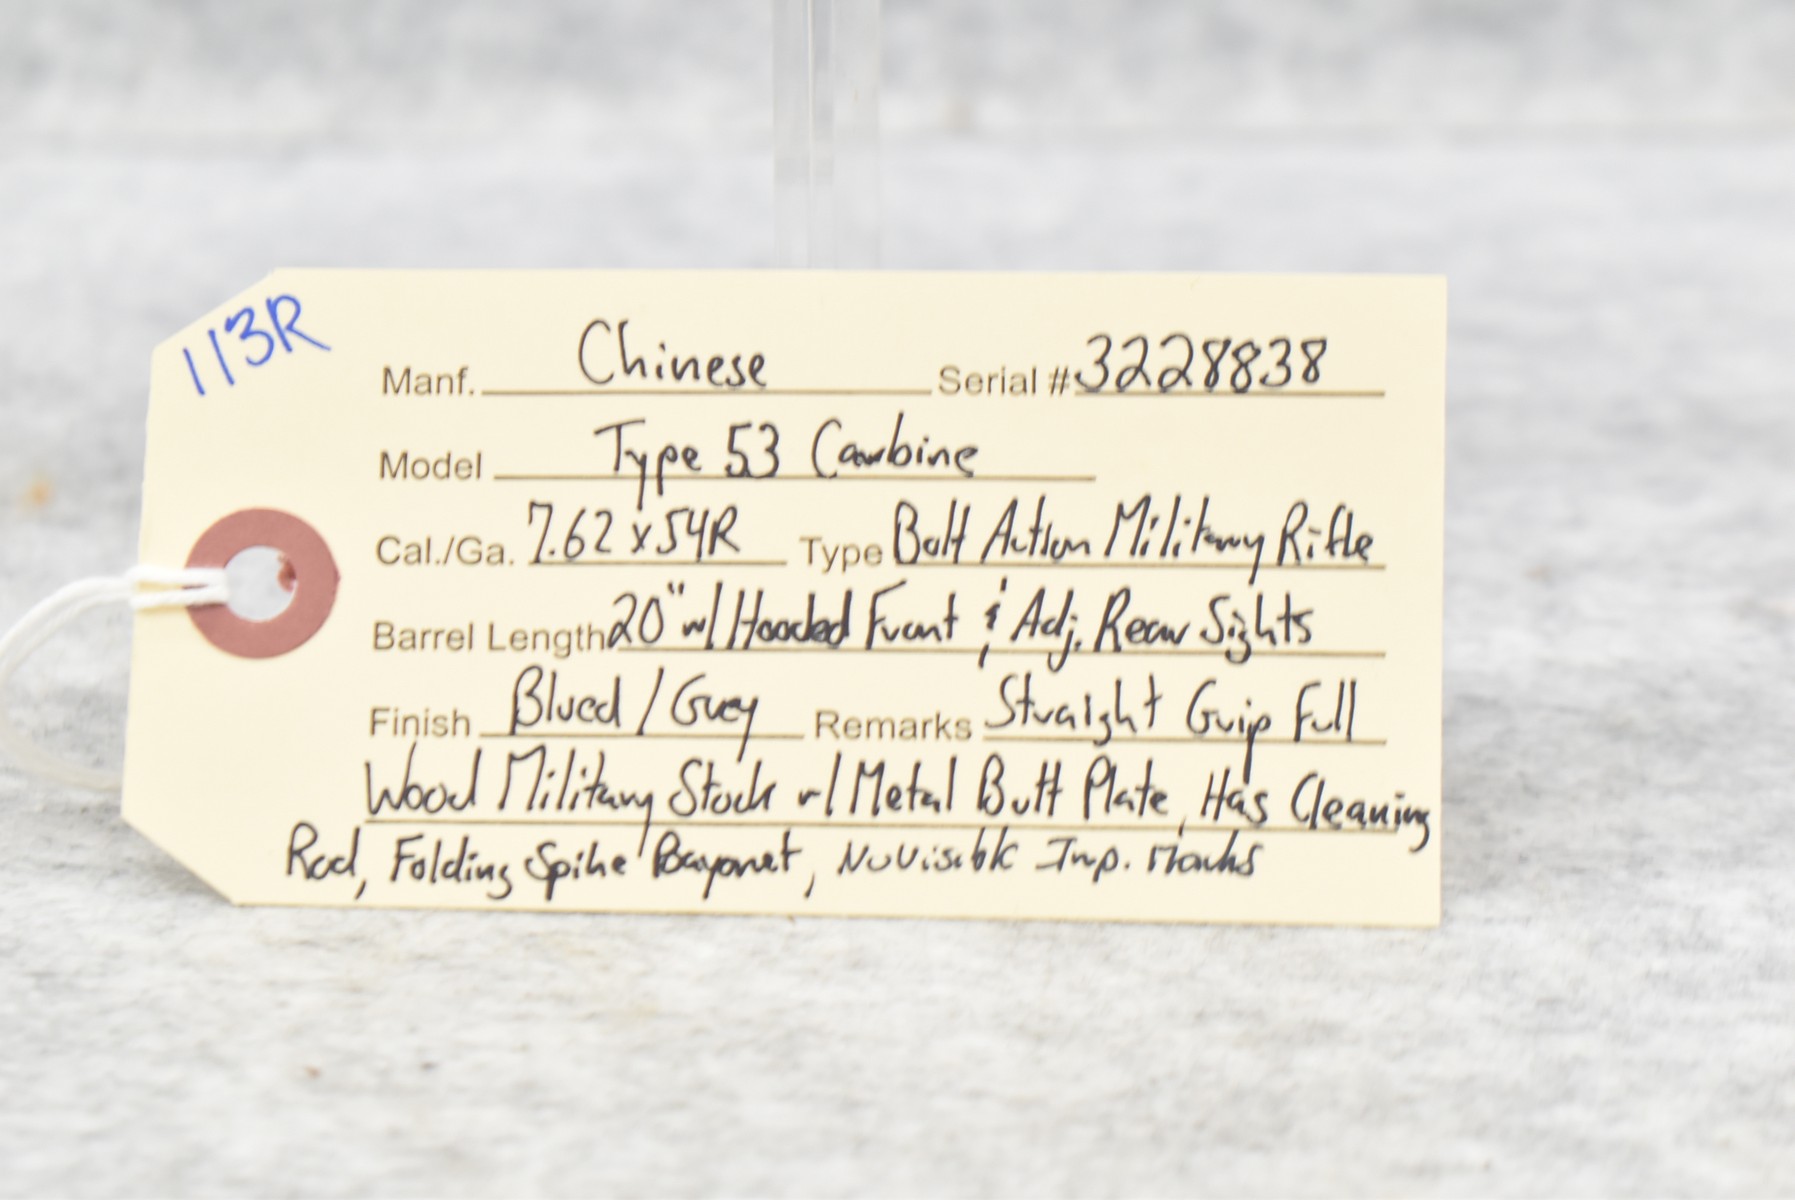 113R
Manf. Chinese Serial # 3228838
Model Type 53 Carbine
Cal./Ga. 7.62x54R Type Bolt Action Military Rifle
Barrel Length 20" w/ Hooded Front & Adj. Rear Sights
Finish Blued / Grey Remarks Straight Grip Full
Wood Military Stock w/ Metal Butt Plate, Has Cleaning
Rod, Folding Spike Bayonet, No Visible Imp. Marks